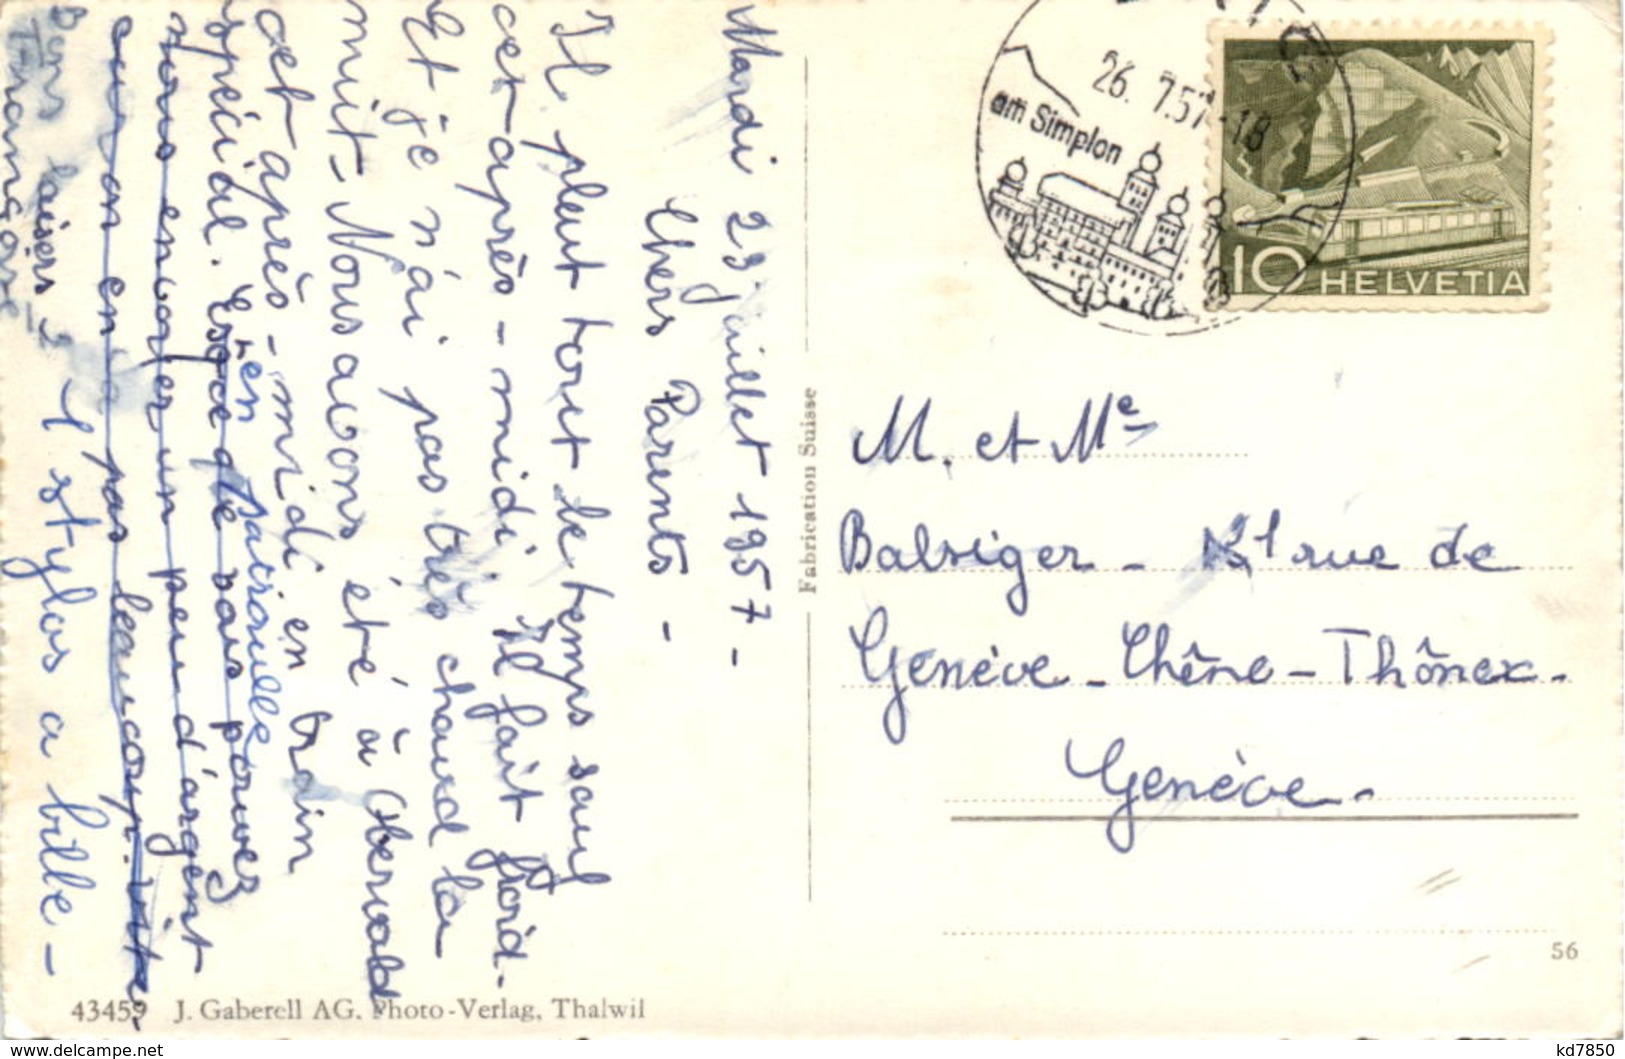 Mardi 23 juillet 1957 -
Chers Parents -
Il pleut tout le temps sauf
cet après-midi. Il fait froid.
Et je n'ai pas très chaud la
nuit - Nous avons été à Oberwald
cet après-midi en train
spécial. Est-ce que vous pouvez
en patrouille
nous envoyer un peu d'argent
car on en a pas beaucoup. vite.
1 stylos a bille -
Bons baisers
26. 7.57 -18
am Simplon
10 HELVETIA
M. et Me
Balsiger - rue de
Genève - Chêne - Thônex -
Genève -
Fabrication Suisse
56
43459 J. Gaberell AG. Photo-Verlag, Thalwil
www.delcampe.net
kd7850